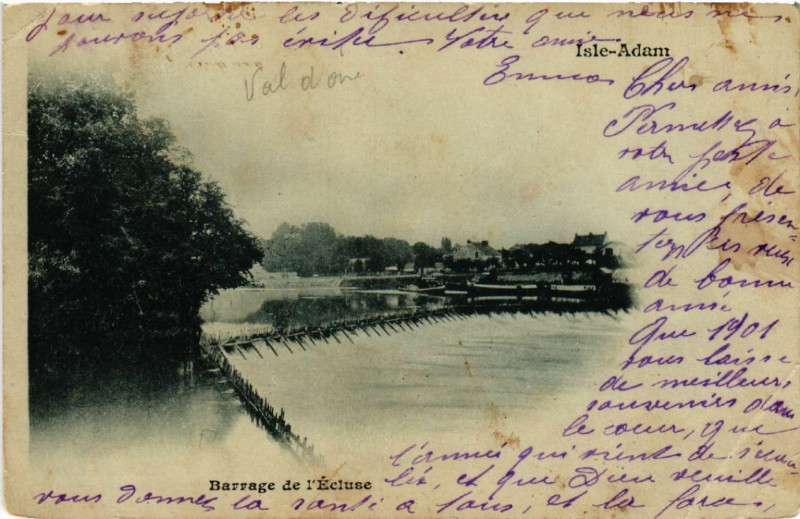 Isle-Adam
Val d'oise
Cher amis,
Permettez à
votre petite
amie, de
vous présen-
ter ses vœux
de bonne
année
Que 1901
vous laisse
de meilleurs
souvenirs dans
le cœur, que
l'année qui vient de s'écou-
lée, et que Dieu veuille
vous donner la santé à tous, et la force,
pour suporter les dificultés que nous ne
pouvons pas éviter. Votre amie
Emma
Barrage de l'Écluse